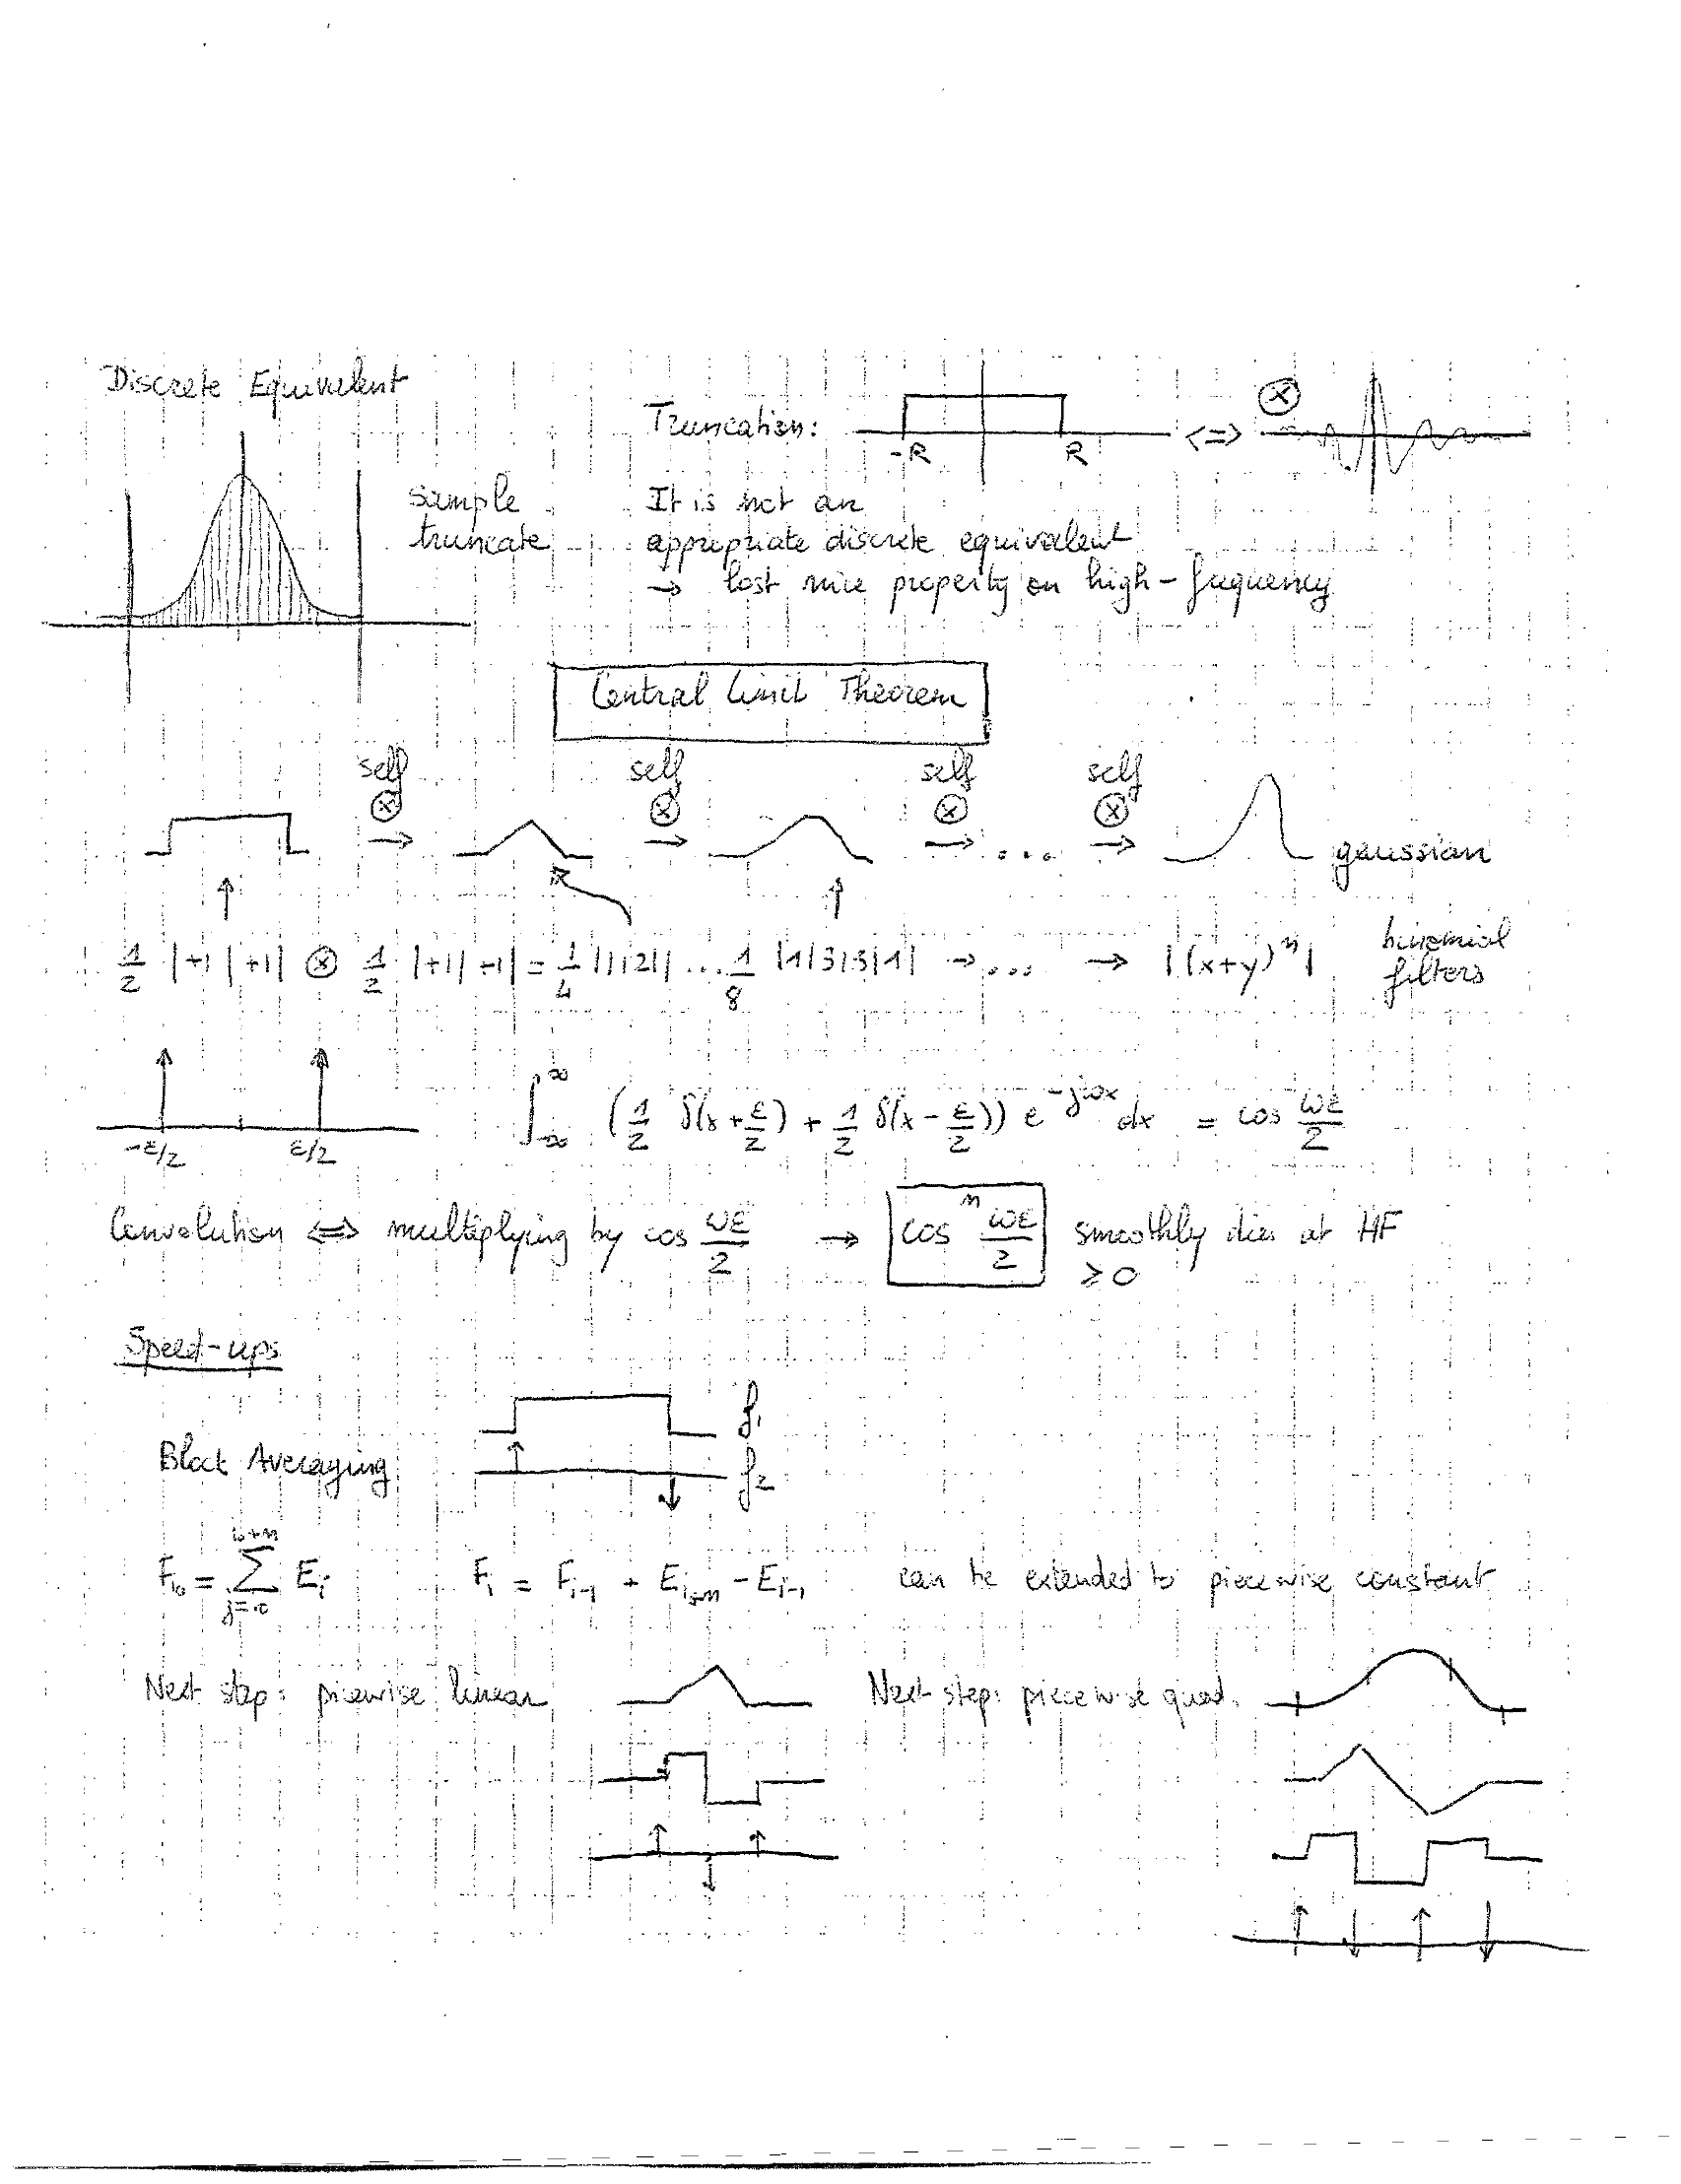 Discrete Equivalent
Truncation:
-R R <=> ⊗
sample
truncate
It is not an
appropriate discrete equivalent
→ lost nice property on high-frequency
Central Limit Theorem
self self self self
⊗ → ⊗ → ⊗ → ... ⊗ → gaussian
1/2 |+1|+1| ⊗ 1/2 |+1|+1| = 1/4 |1|2|1| ... 1/8 |1|3|3|1| → ... → |(x+y)^n| binomial filters
-ε/2 ε/2
∫_{-∞}^{∞} (1/2 δ(x+ε/2) + 1/2 δ(x-ε/2)) e^{-jωx} dx = cos ωε/2
Convolution <=> multiplying by cos ωε/2 → cos^n ωε/2 smoothly dies at HF
≥ 0
Speed-ups
f₁
Block Averaging
f₂
F_{i0} = Σ_{j=i0}^{i0+n} E_j F_i = F_{i-1} + E_{i+n} - E_{i-1} can be extended to piecewise constant
Next step: piecewise linear Next step: piecewise quad.